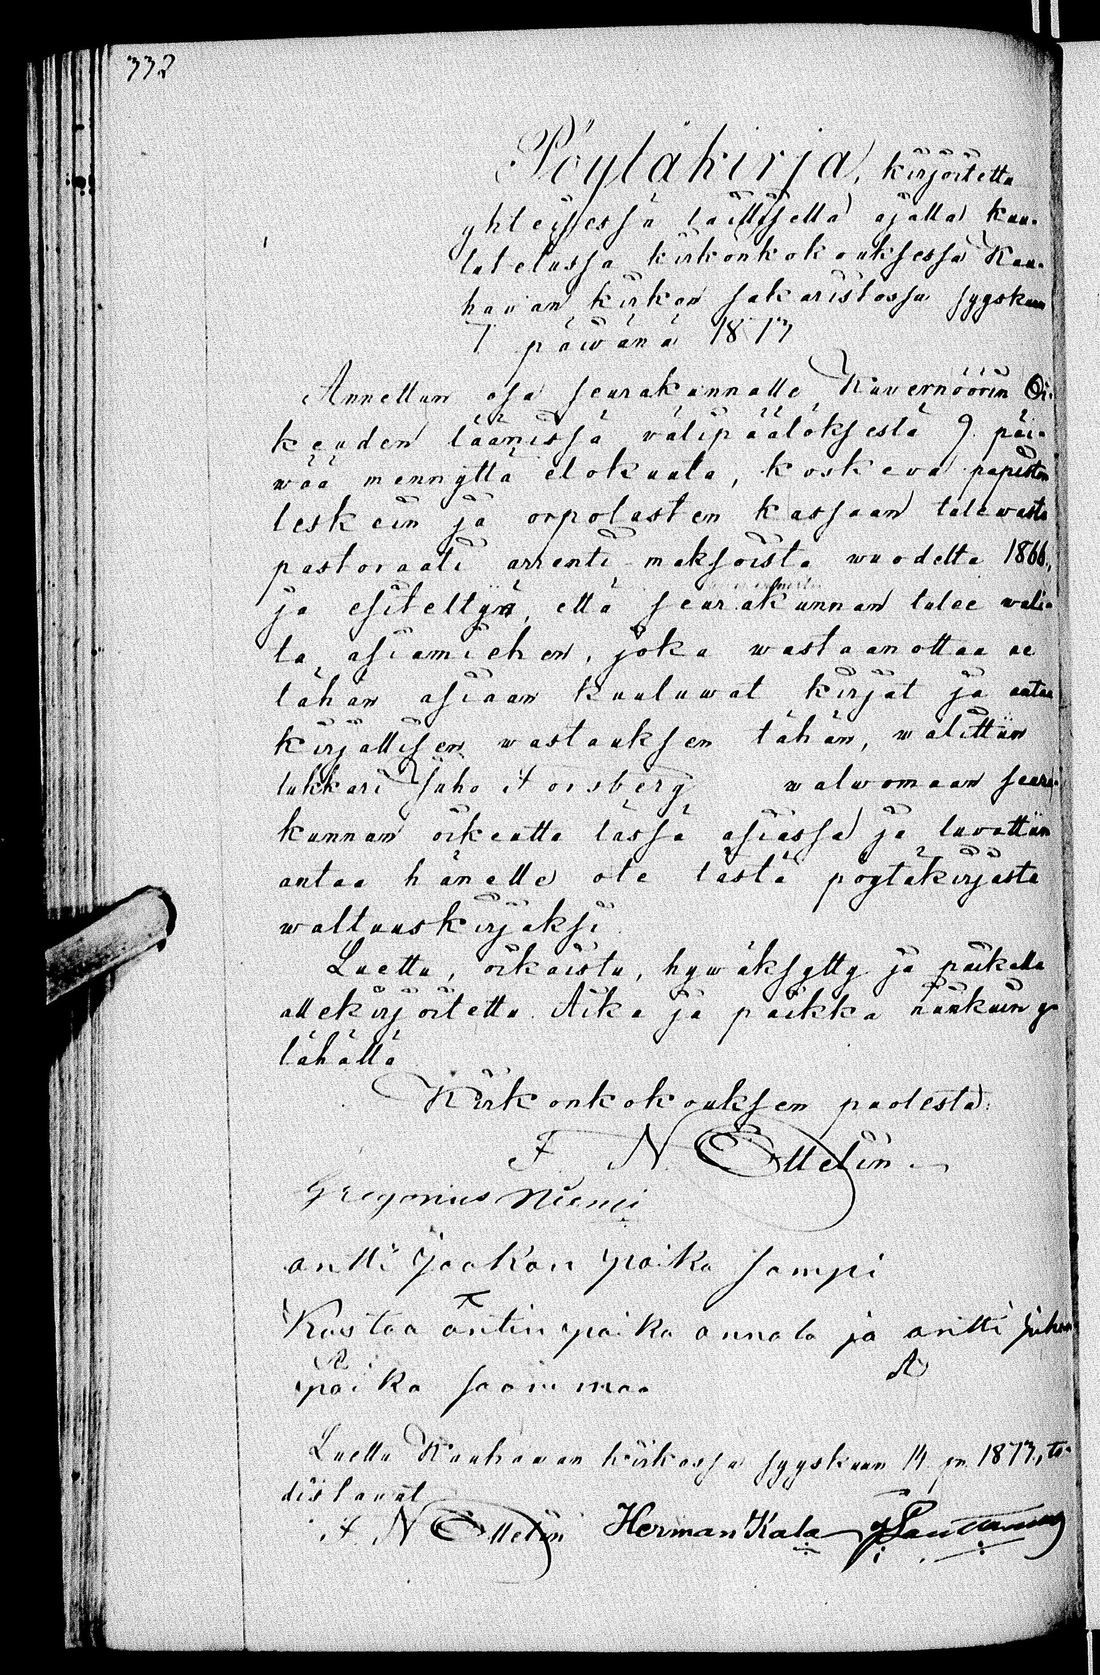 332
Pöytäkirja, kirjoitettu
yhteisessä laillisella ajalla kuu-
lutetussa kirkonkokouksessa Kau-
havan kirkon sakaristossa syyskuun
7 päiwänä 1873
Annettun osa seurakunnalle Kuvernöörin Oi-
keuden läänissä välipäätöksestä 9. päi-
wää mennyttä elokuuta, koskeva papiston
leskein ja orpolasten kassaan tulewasta
pastoraati arrenti maksoista wuodelta 1866,
ja esiteltyä, että seurakunnan tulee wali-
ta asiamiehen, joka wastaanottaa ne
tähän asiaan kuuluwat kirjat ja antaa
kirjallisen wastauksen tähän, walittiin
lukkari Juho Forsberg walwomaan seura-
kunnan oikeutta tässä asiassa ja luvattiin
antaa hänelle ote tästä pöytäkirjasta
waltuuskirjaksi.
Luettu, oikaistu, hywäksytty ja paikalla
allekirjoitettu. Aika ja paikka niinkuin y-
lähällä
Kirkonkokouksen puolesta:
F. N. Ottelin.
Gregorius Niemi
antti Jaakon poika Sampi
Kustaa antin poika annala ja antti Juhan
poika Saarimaa
Luettu Kauhavan kirkossa syyskuun 14 pn. 1873, to-
distavat
F. N. Ottelin Herman Kala